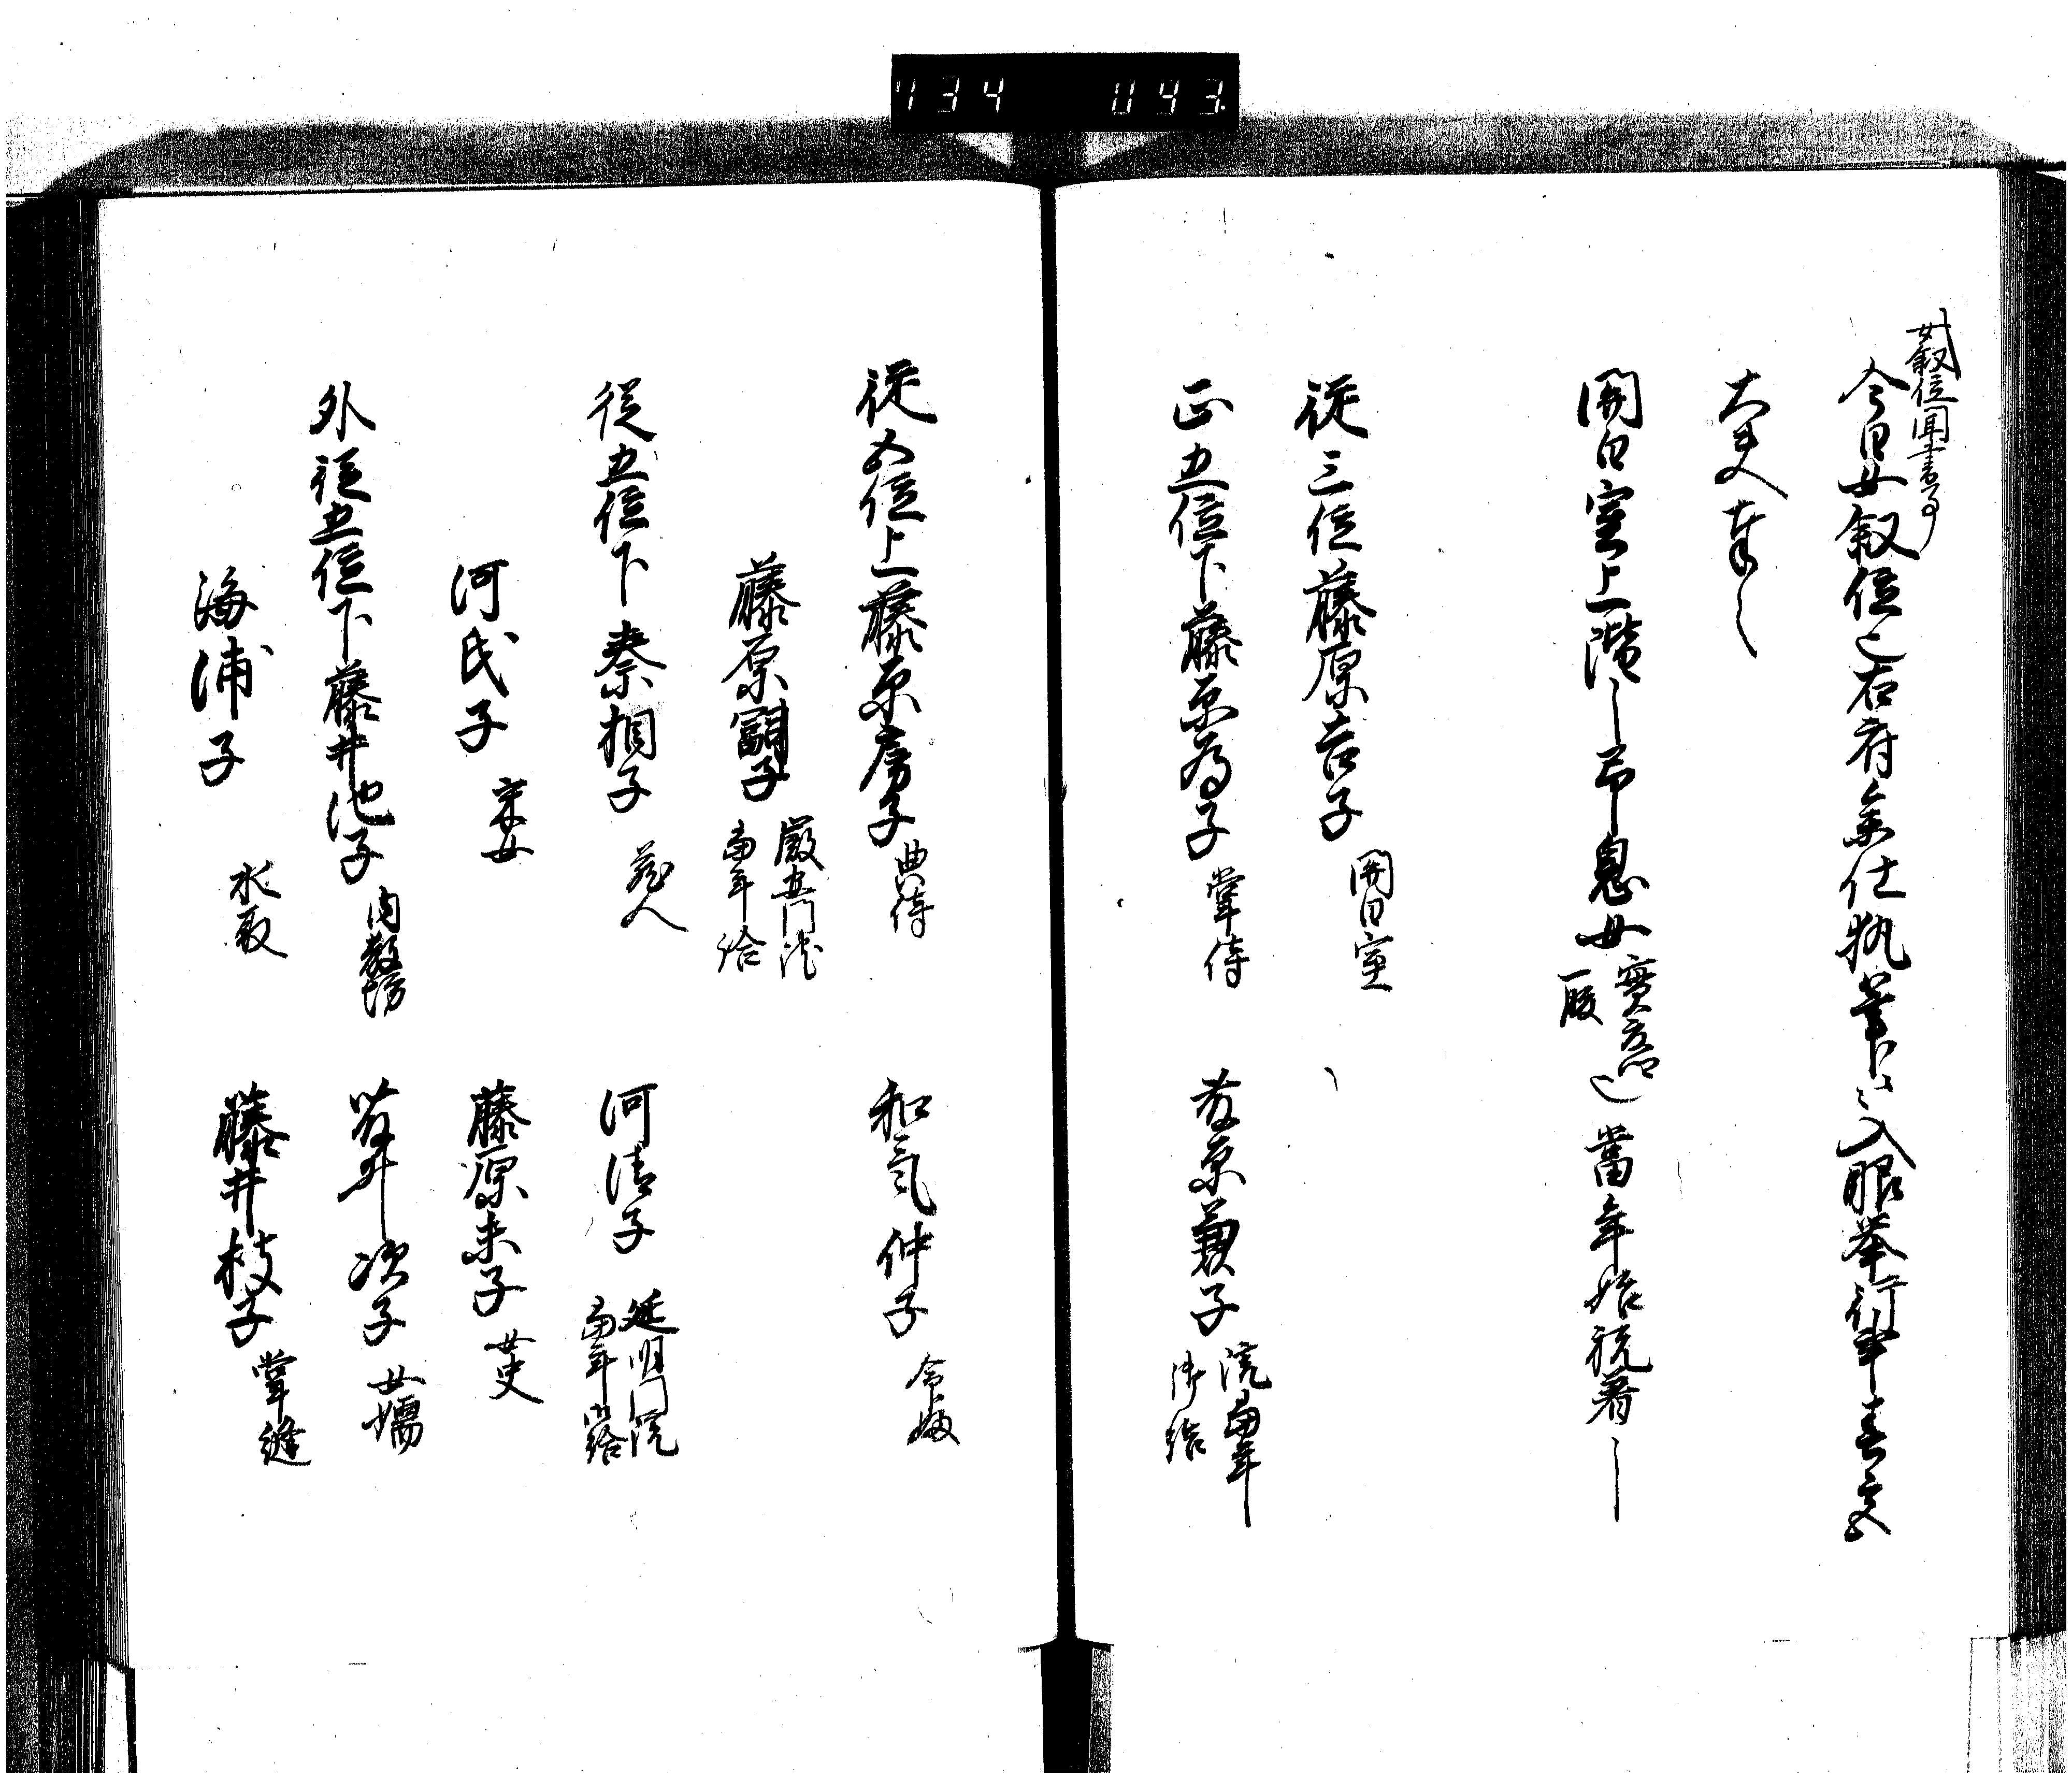 734 043
女叙位聞書事
今日女叙位也右府参仕執筆云々入眼挙行事春宮
大夫奉之
関白室上階之弟息女實高卿一腹也當年始被著之
従三位藤原吉子 関白室
正五位下藤原為子 掌侍 藤原兼子 院當年御給
従五位上藤原房子 典侍 和気仲子 命婦
藤原嗣子 當年給
従五位下秦相子 蔵人 河清子 延明門院當年御給
河氏子 采女 藤原未子 女史
外従五位下藤井池子 内教坊 藤井次子 女嬬
海浦子 水取 藤井枝子 掌縫